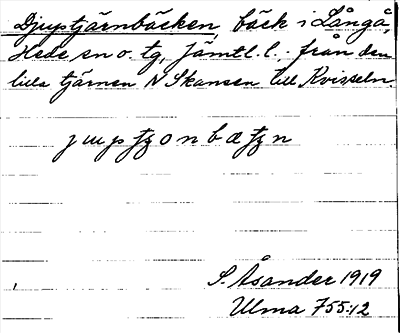 Djuptjärnbäcken, bäck i Långå,
Hede sn o. tg, Jämtl. l. - från den
lilla tjärnen N Skansen till Kvisseln.
S. Åsander 1919
Ulma 755:12